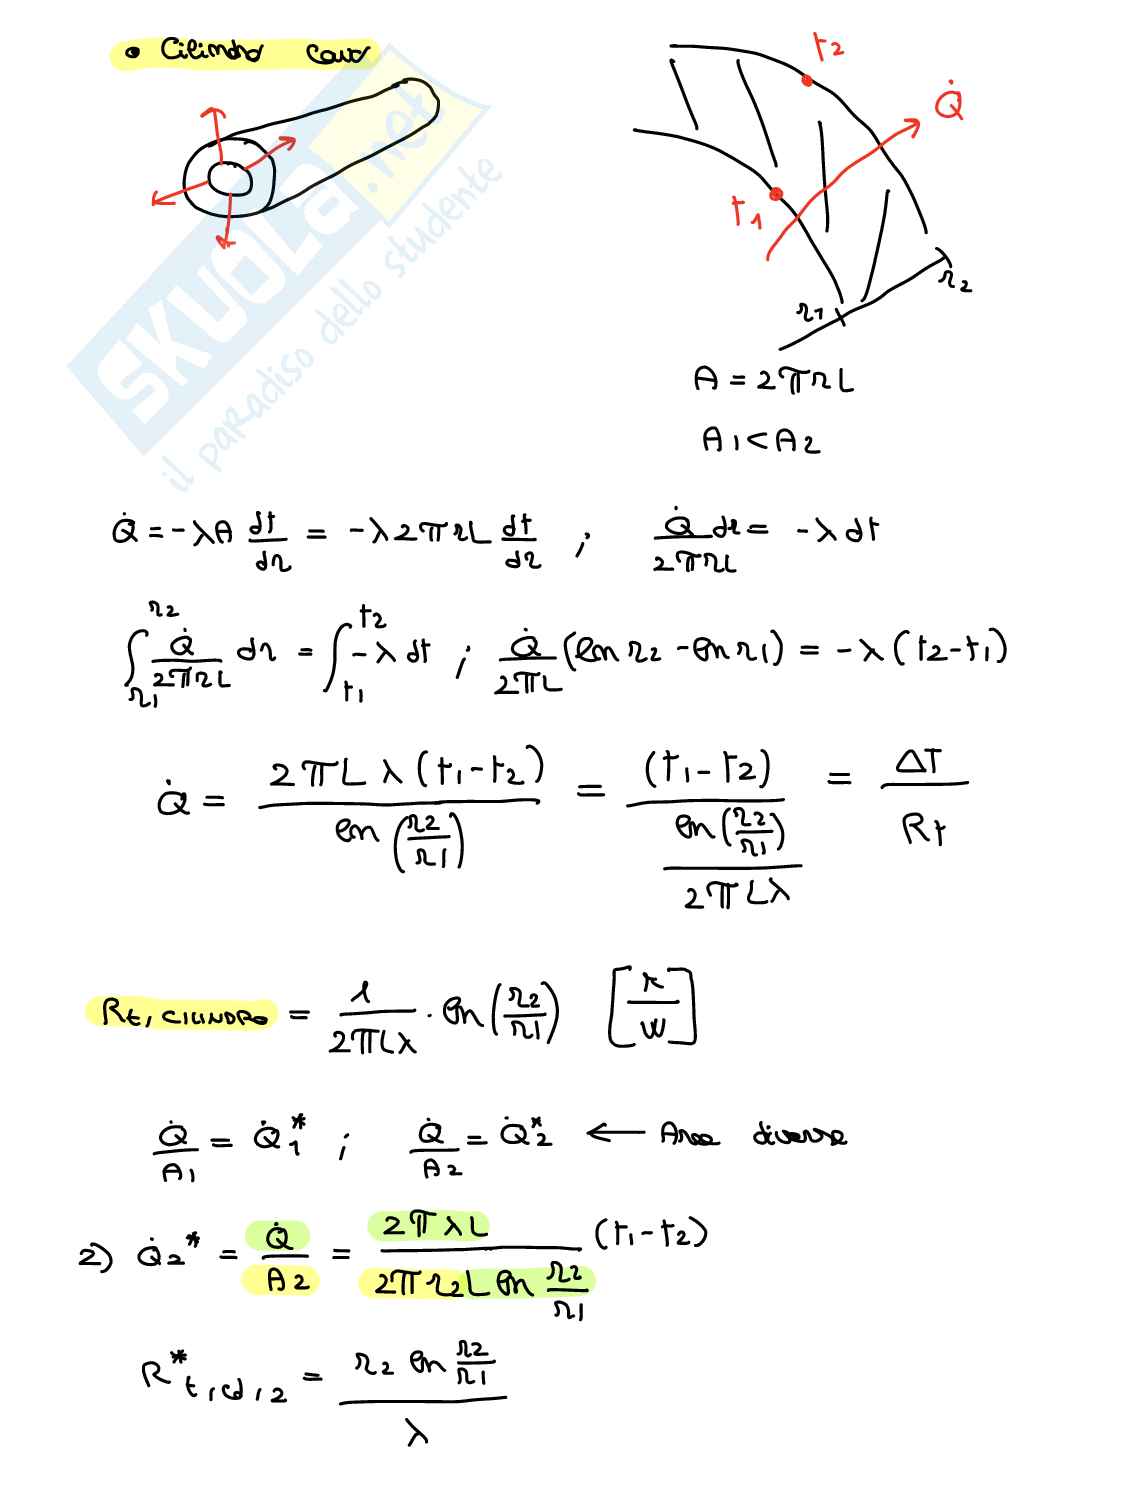 • Cilindro cavo
t2
Q̇
t1
r2
r1
A = 2πrL
A1 < A2
Q̇ = -λA dt/dr = -λ2πrL dt/dr ; Q̇/2πrL dr = -λ dt
∫r1^r2 Q̇/2πrL dr = ∫t1^t2 -λ dt ; Q̇/2πL (ln r2 - ln r1) = -λ (t2 - t1)
Q̇ = 2πLλ(t1 - t2) / ln(r2/r1) = (t1 - t2) / (ln(r2/r1) / 2πLλ) = ΔT / Rt
Rt, CILINDRO = 1/2πLλ · ln(r2/r1) [K/W]
Q̇/A1 = Q̇1* ; Q̇/A2 = Q̇2* ← Aree diverse
2) Q̇2* = Q̇/A2 = 2πλL / 2πr2L ln r2/r1 (t1 - t2)
R*t,cd,2 = r2 ln r2/r1 / λ
SKUOLA.net
il paradiso dello studente